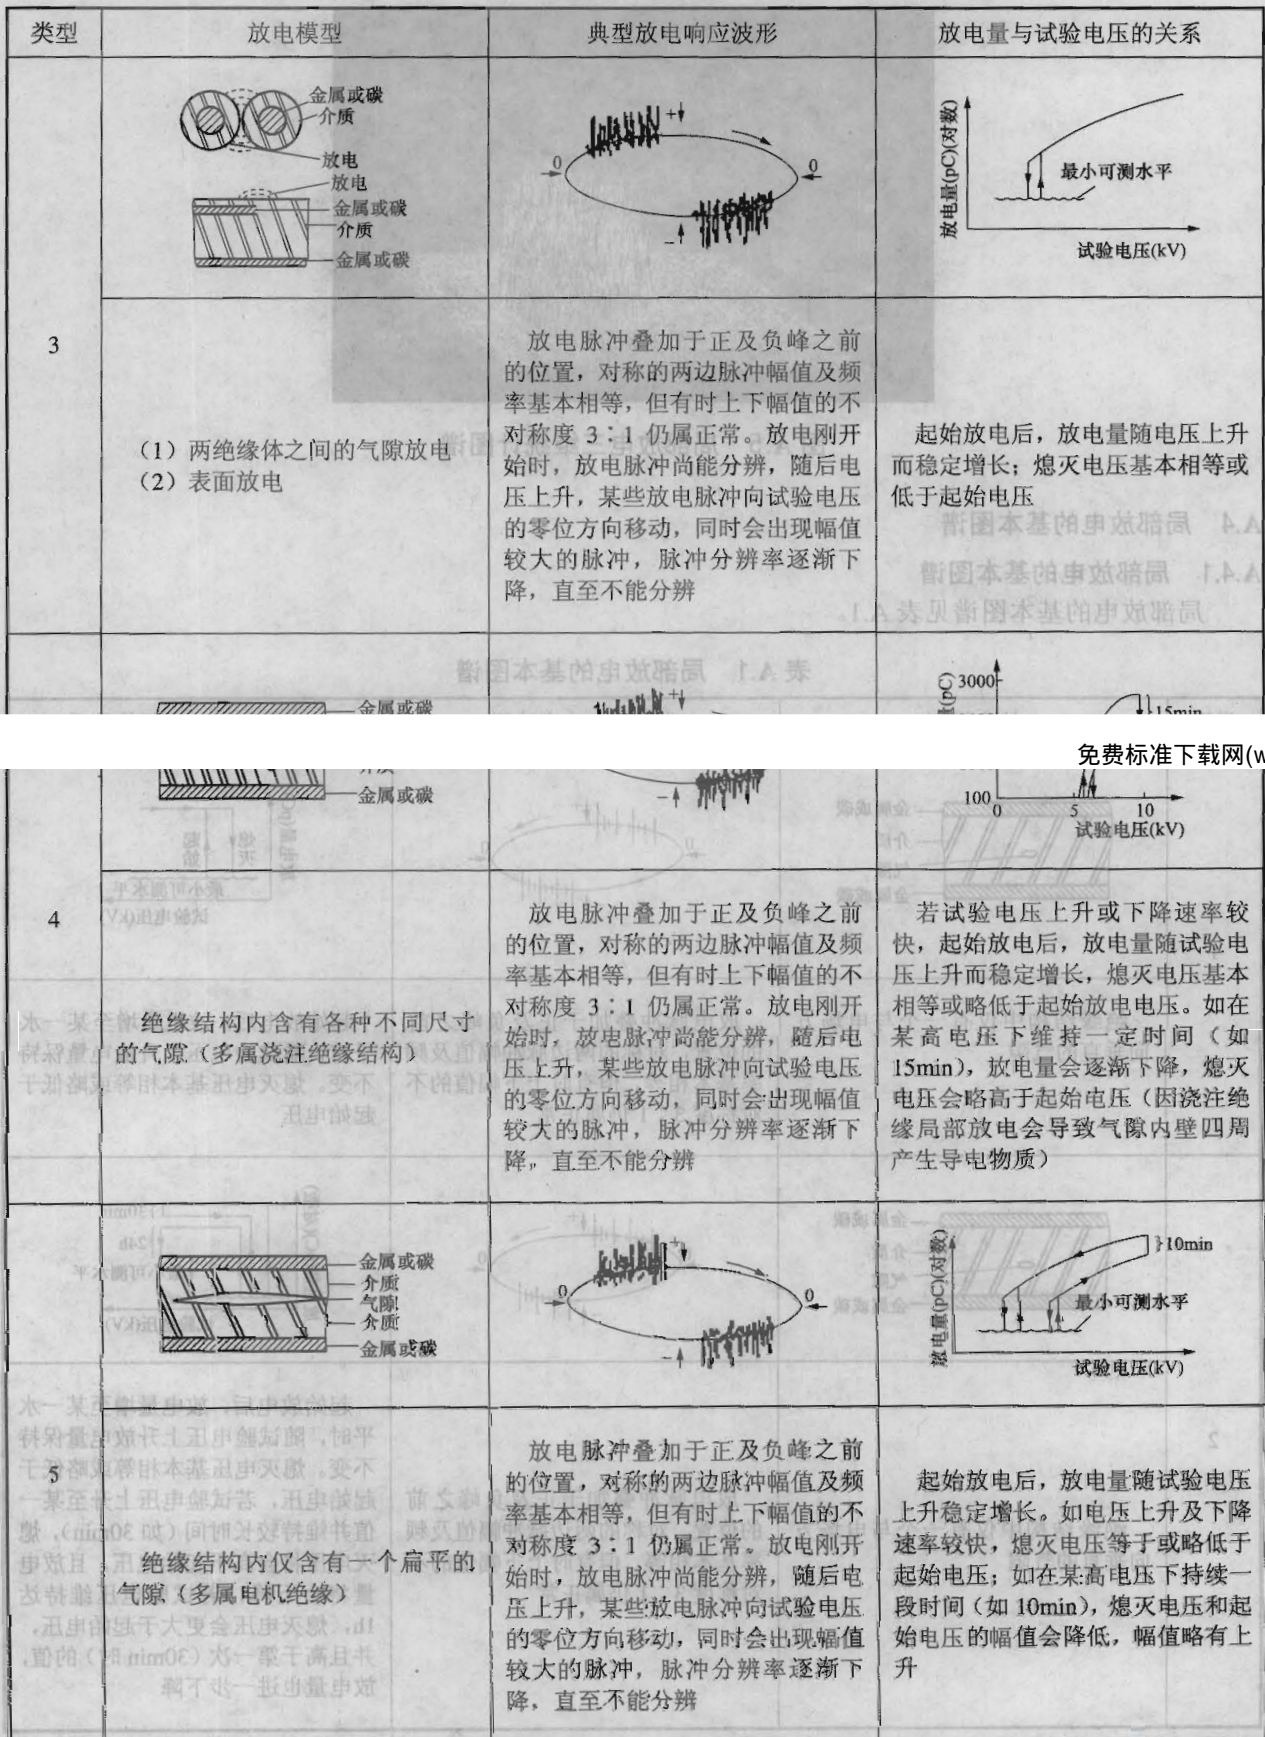 类型
放电模型
典型放电响应波形
放电量与试验电压的关系
3
金属或碳
介质
放电
放电
金属或碳
介质
金属或碳
+
0
0
−
放电量(pC)(对数)
最小可测水平
试验电压(kV)
（1）两绝缘体之间的气隙放电
（2）表面放电
放电脉冲叠加于正及负峰之前
的位置，对称的两边脉冲幅值及频
率基本相等，但有时上下幅值的不
对称度 3∶1 仍属正常。放电刚开
始时，放电脉冲尚能分辨，随后电
压上升，某些放电脉冲向试验电压
的零位方向移动，同时会出现幅值
较大的脉冲，脉冲分辨率逐渐下
降，直至不能分辨
起始放电后，放电量随电压上升
而稳定增长；熄灭电压基本相等或
低于起始电压
A.4 局部放电的基本图谱
A.4.1 局部放电的基本图谱
局部放电的基本图谱见表 A.1。
表 A.1 局部放电的基本图谱
金属或碳
+
(pC)
3000
15min
免费标准下载网(w
4
金属或碳
−
100
0
5
10
试验电压(kV)
绝缘结构内含有各种不同尺寸
的气隙（多属浇注绝缘结构）
放电脉冲叠加于正及负峰之前
的位置，对称的两边脉冲幅值及频
率基本相等，但有时上下幅值的不
对称度 3∶1 仍属正常。放电刚开
始时，放电脉冲尚能分辨，随后电
压上升，某些放电脉冲向试验电压
的零位方向移动，同时会出现幅值
较大的脉冲，脉冲分辨率逐渐下
降，直至不能分辨
若试验电压上升或下降速率较
快，起始放电后，放电量随试验电
压上升而稳定增长，熄灭电压基本
相等或略低于起始放电电压。如在
某高电压下维持一定时间（如
15min），放电量会逐渐下降，熄灭
电压会略高于起始电压（因浇注绝
缘局部放电会导致气隙内壁四周
产生导电物质）
5
金属或碳
介质
气隙
介质
金属或碳
+
0
0
−
放电量(pC)(对数)
10min
最小可测水平
试验电压(kV)
绝缘结构内仅含有一个扁平的
气隙（多属电机绝缘）
放电脉冲叠加于正及负峰之前
的位置，对称的两边脉冲幅值及频
率基本相等，但有时上下幅值的不
对称度 3∶1 仍属正常。放电刚开
始时，放电脉冲尚能分辨，随后电
压上升，某些放电脉冲向试验电压
的零位方向移动，同时会出现幅值
较大的脉冲，脉冲分辨率逐渐下
降，直至不能分辨
起始放电后，放电量随试验电压
上升稳定增长。如电压上升及下降
速率较快，熄灭电压等于或略低于
起始电压；如在某高电压下持续一
段时间（如 10min），熄灭电压和起
始电压的幅值会降低，幅值略有上
升